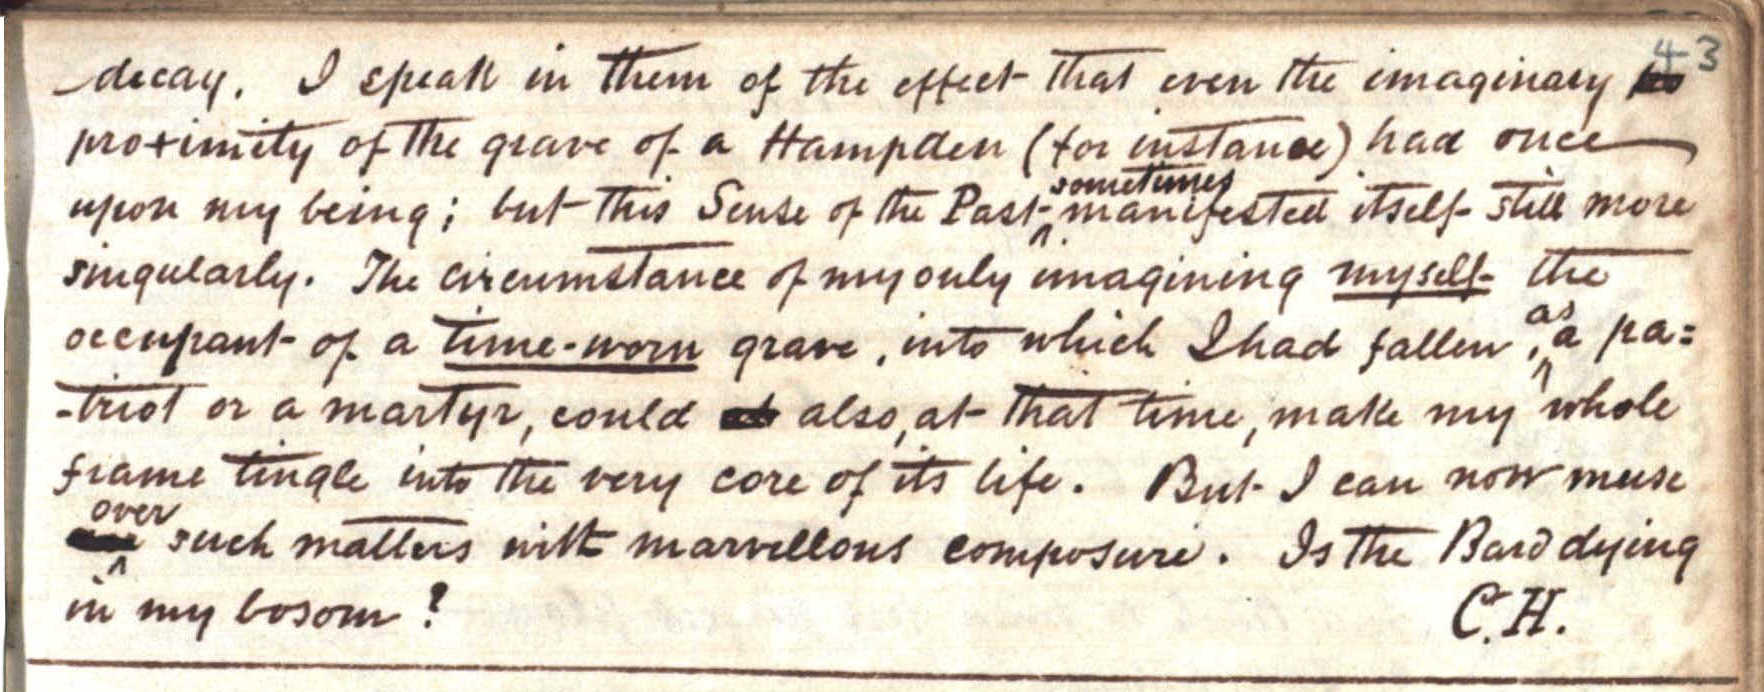 43
decay. I speak in them of the effect that even the imaginary
proximity of the grave of a Hampden (for instance) had once
upon my being; but this Sense of the Past sometimes manifested itself still more
singularly. The circumstance of my only imagining myself the
occupant of a time-worn grave, into which I had fallen, as a pa=
-triot or a martyr, could also, at that time, make my whole
frame tingle into the very core of its life. But I can now muse
over such matters with marvellous composure. Is the Bard dying
in my bosom?
C.H.